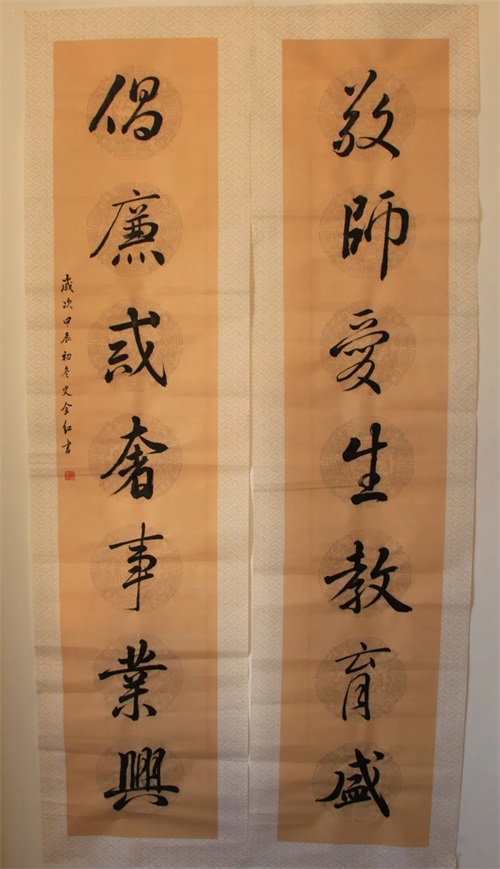 敬師愛生教育盛
倡廉戒奢事業興
歲次甲辰初冬史金紅書